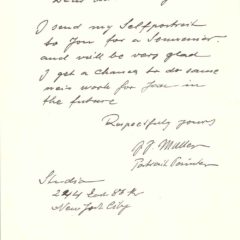 Dear
I send my Selfportrait
to You for a Souvenier.
and will be very glad
I get a chance to do some
new work for You in
the future
Respectfuly yours
Portrait Painter
Studio
New York City